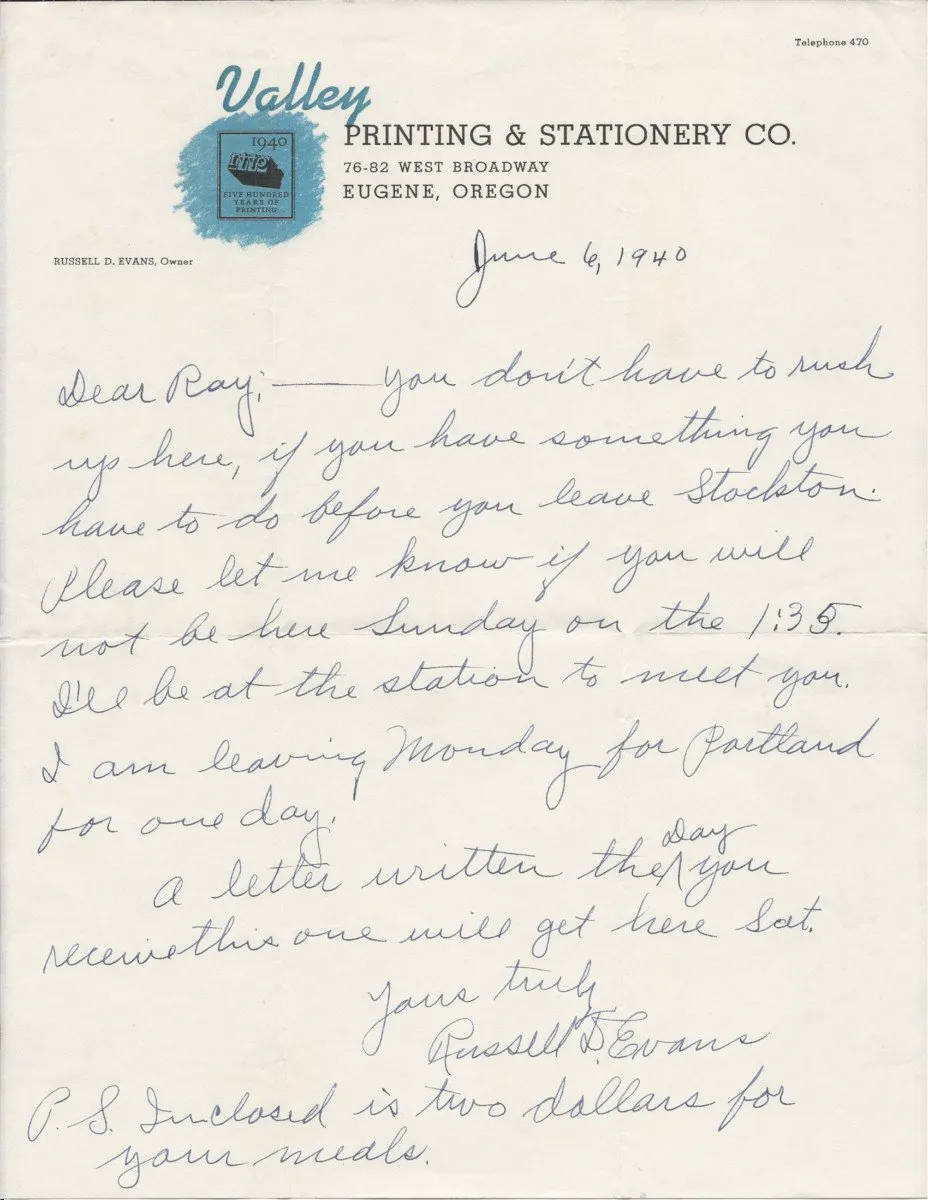 Telephone 470
Valley
PRINTING & STATIONERY CO.
76-82 WEST BROADWAY
EUGENE, OREGON
1940
FIVE HUNDRED
YEARS OF
PRINTING
RUSSELL D. EVANS, Owner
June 6, 1940
Dear Ray; — You don't have to rush
up here, if you have something you
have to do before you leave Stockton.
Please let me know if you will
not be here Sunday on the 1:35.
I'll be at the station to meet you.
I am leaving Monday for Portland
for one day.
Day
A letter written the you
receive this one will get here Sat.
Yours truly
Russell D. Evans
P.S. Inclosed is two dollars for
your meals.